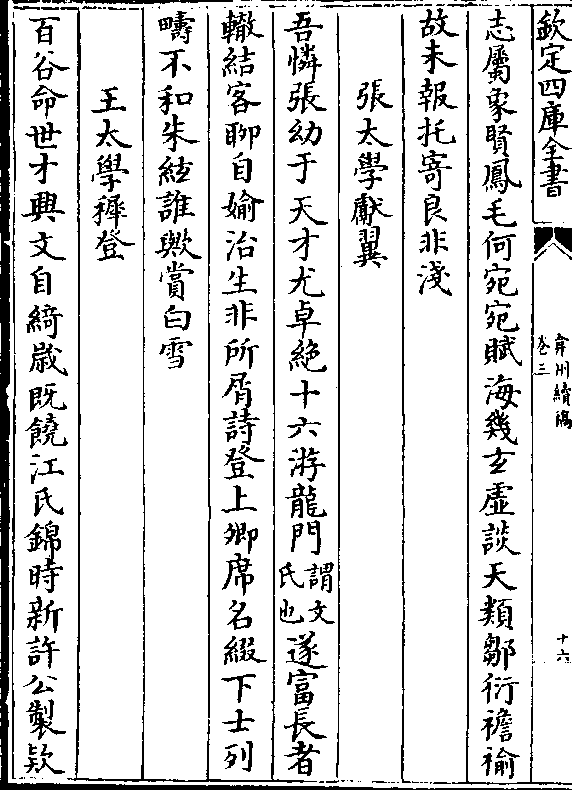 欽定四庫全書
弇州續稿
卷三
十六
志屬象賢鳳毛何宛宛賦海幾玄虛談天類鄒衍襜褕
故未報托寄良非淺
張太學獻翼
吾憐張幼于天才尤卓絶十六游龍門謂文氏也遂富長者
轍結客聊自媮治生非所屑詩登上卿席名綴下士列
疇不和朱絃誰歟賞白雪
王太學穉登
百谷命世才興文自綺歲既饒江氏錦時新許公製欵